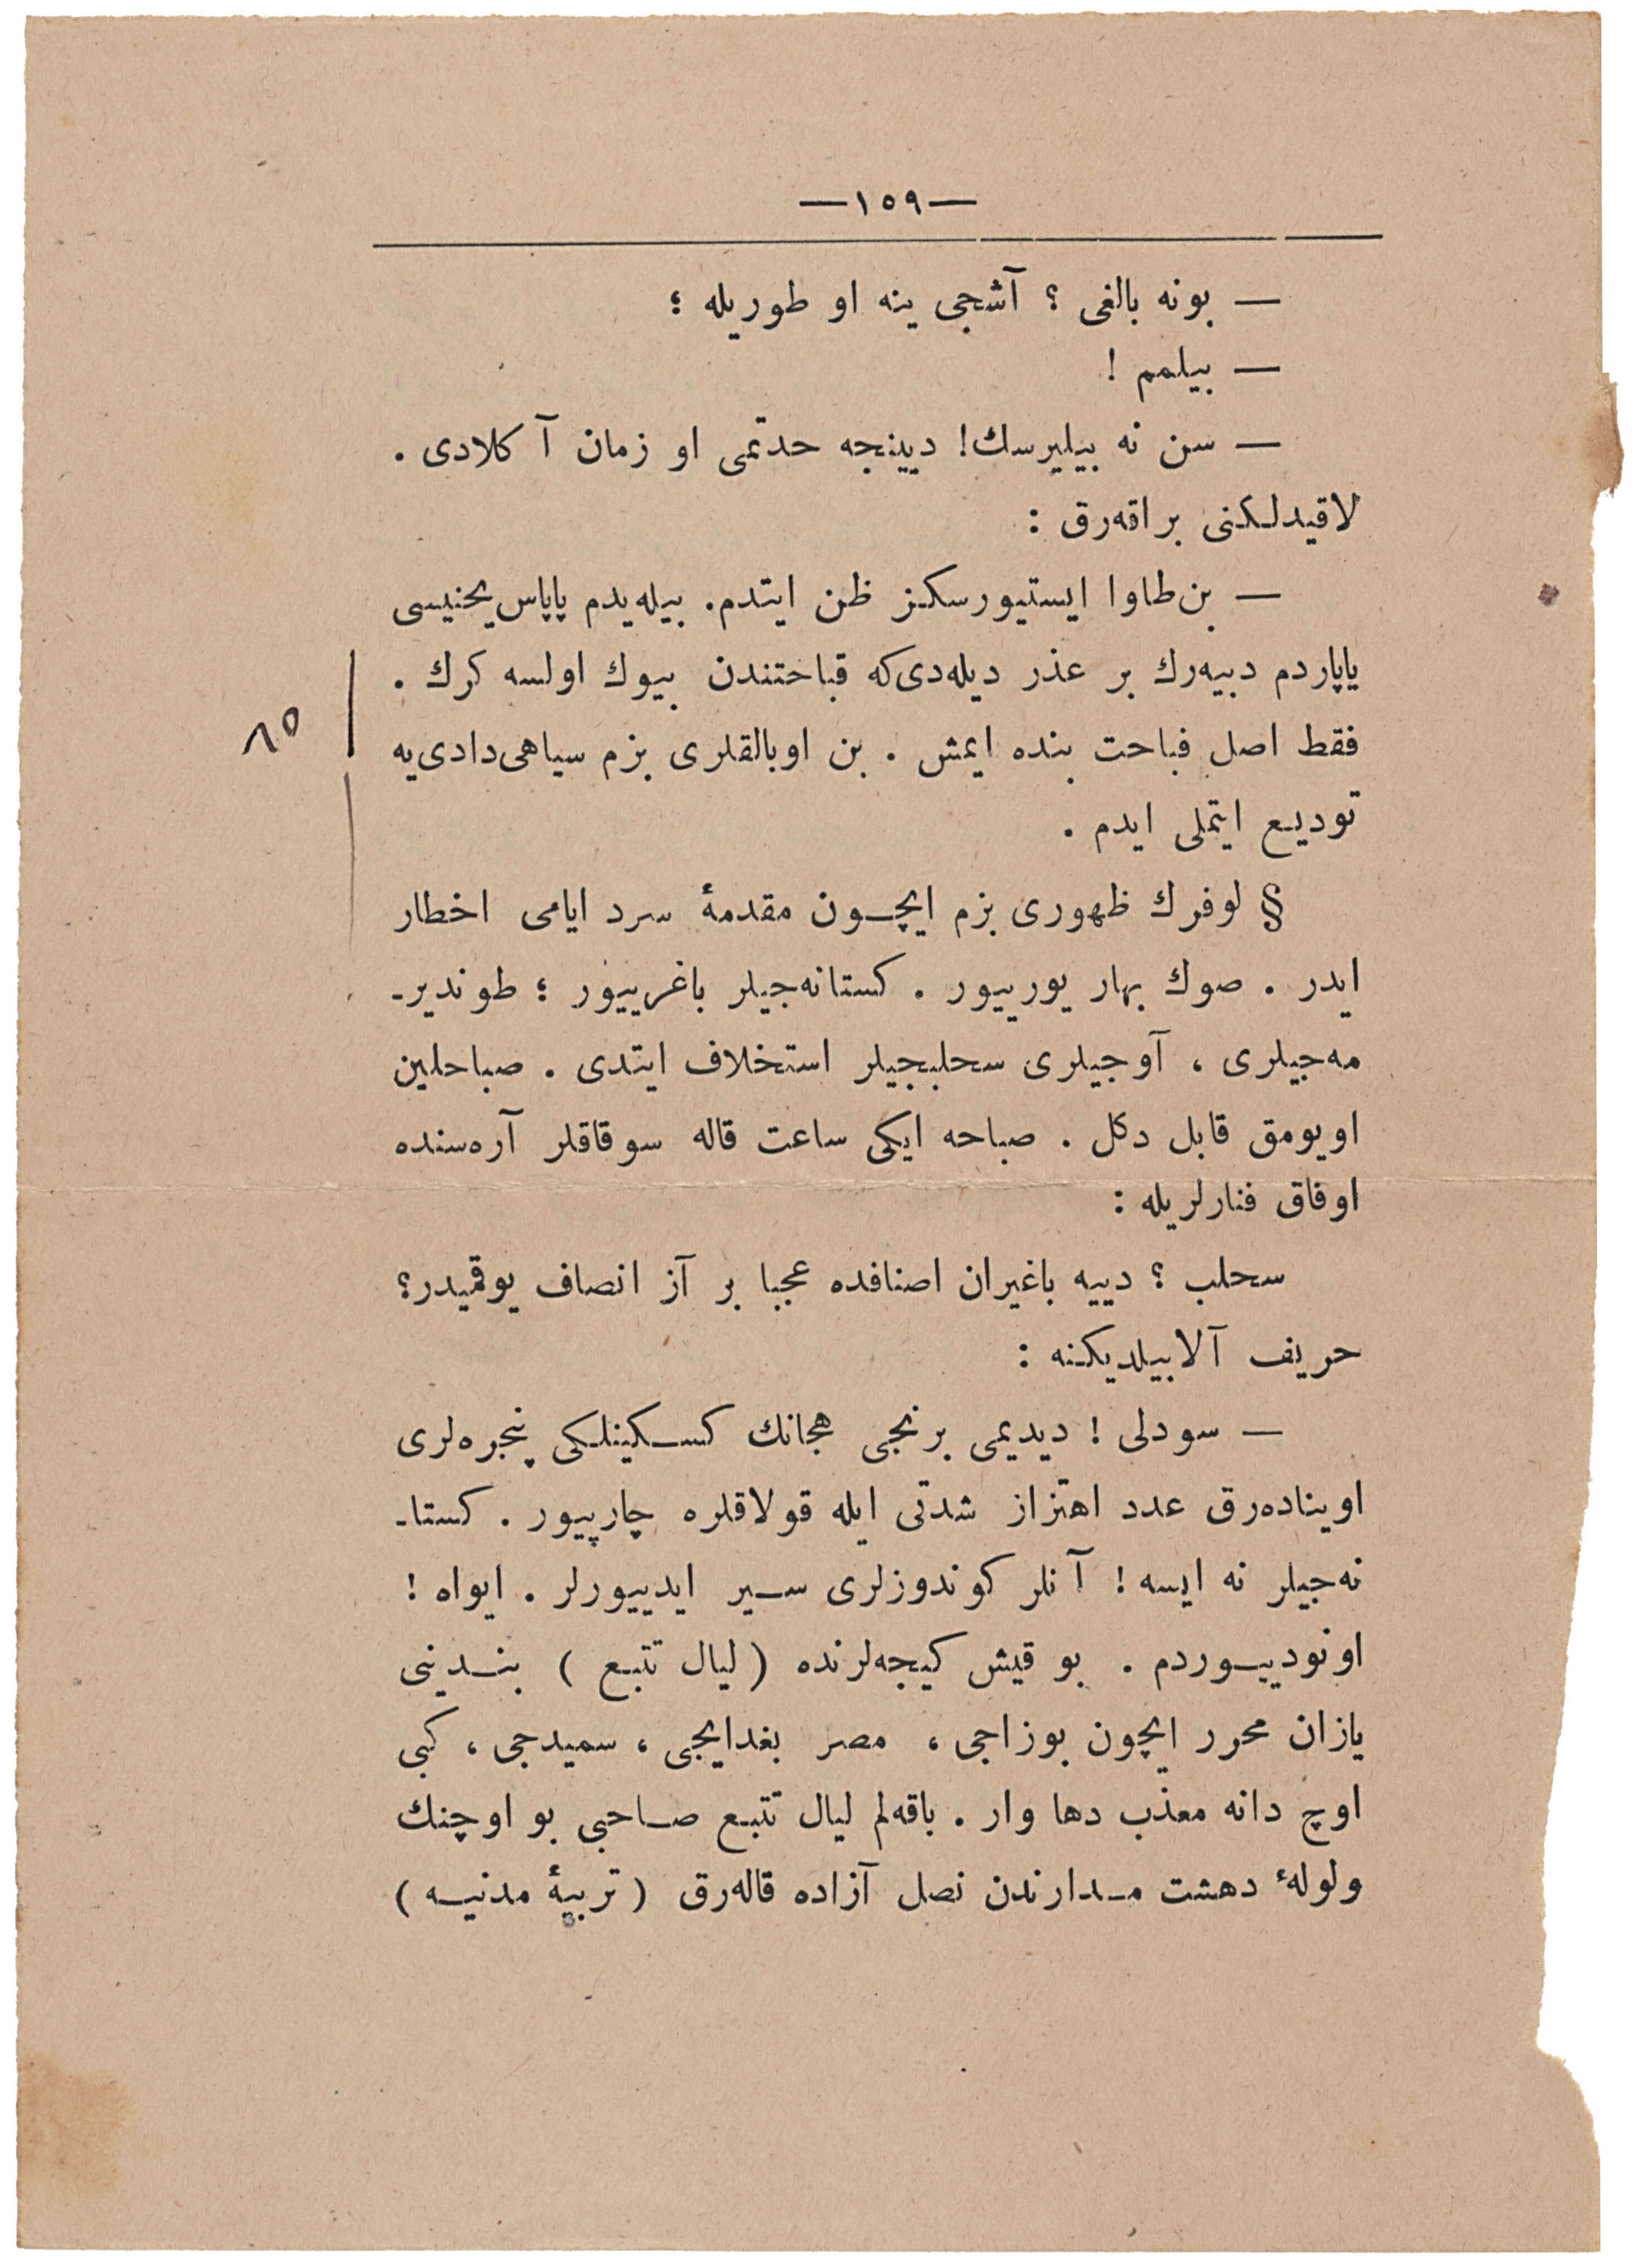 —١٥٩—
— بونه بالغى ؟ آشجى ينه او طوريله ؛
— بيلمم !
— سن نه بيليرسك! ديينجه حدتمى او زمان آ كلادى .
لاقيدلكنى براقه‌رق :
— بن طاوا ايستيورسكز ظن ايتدم. بيله‌يدم پاپاس يخنيسى
ياپاردم دبيه‌رك بر عذر ديله‌دى كه قباحتندن بيوك اولسه كرك .
فقط اصل فباحت بنده ايمش . بن اوبالقلرى بزم سياهى دادى يه
توديع ايتملى ايدم .
§ لوفرك ظهورى بزم ايچون مقدمهٔ سرد ايامى اخطار
ايدر . صوك بهار يورييور . كستانه‌جيلر باغرييور ؛ طوندير-
مه‌جيلرى ، آوجيلرى سحلبجيلر استخلاف ايتدى . صباحلين
اويومق قابل دكل . صباحه ايكى ساعت قاله سوقاقلر آره‌سنده
اوفاق فنارلريله :
سحلب ؟ دييه باغيران اصنافده عجبا بر آز انصاف يوقميدر؟
حريف آلابيلديكنه :
— سودلى ! ديديمى برنجى هجانك كسكينلكى پنجره‌لرى
اويناده‌رق عدد اهتزاز شدتى ايله قولاقلره چارپيور . كستا-
نه‌جيلر نه ايسه ! آنلر كوندوزلرى سير ايدييورلر . ايواه !
اونودييوردم . بو قيش كيجه‌لرنده ( ليال تتبع ) بندينى
يازان محرر ايچون بوزاجى ، مصر بغدايجى ، سميدجى ، كبى
اوچ دانه معذب دها وار . باقه‌لم ليال تتبع صاحبى بو اوچنك
ولولهٔ دهشت مدارندن نصل آزاده قاله‌رق ( تربيهٔ مدنيه )
٨٥